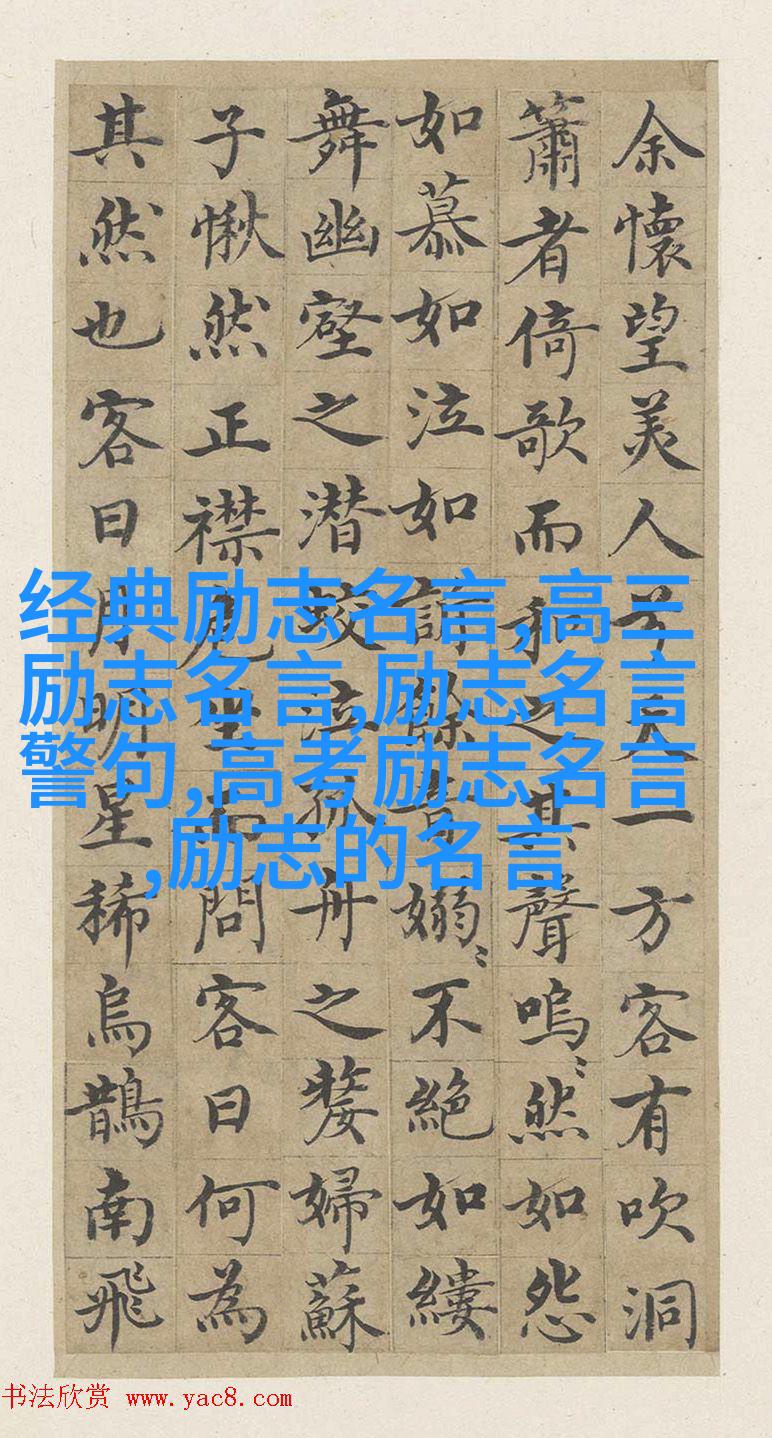 余懷望美人兮天一方客有吹洞
簫者倚歌而和之其聲嗚〻然如怨
如慕如泣如訴餘音嫋〻不絕如縷
舞幽壑之潜蛟泣孤舟之嫠婦蘇
子愀然正襟危坐而問客曰何為
其然也客曰月明星稀烏鵲南飛
经典励志名言,高三
励志名言,励志名言
警句,高考励志名言
,励志的名言
书法欣赏 www.yac8.com